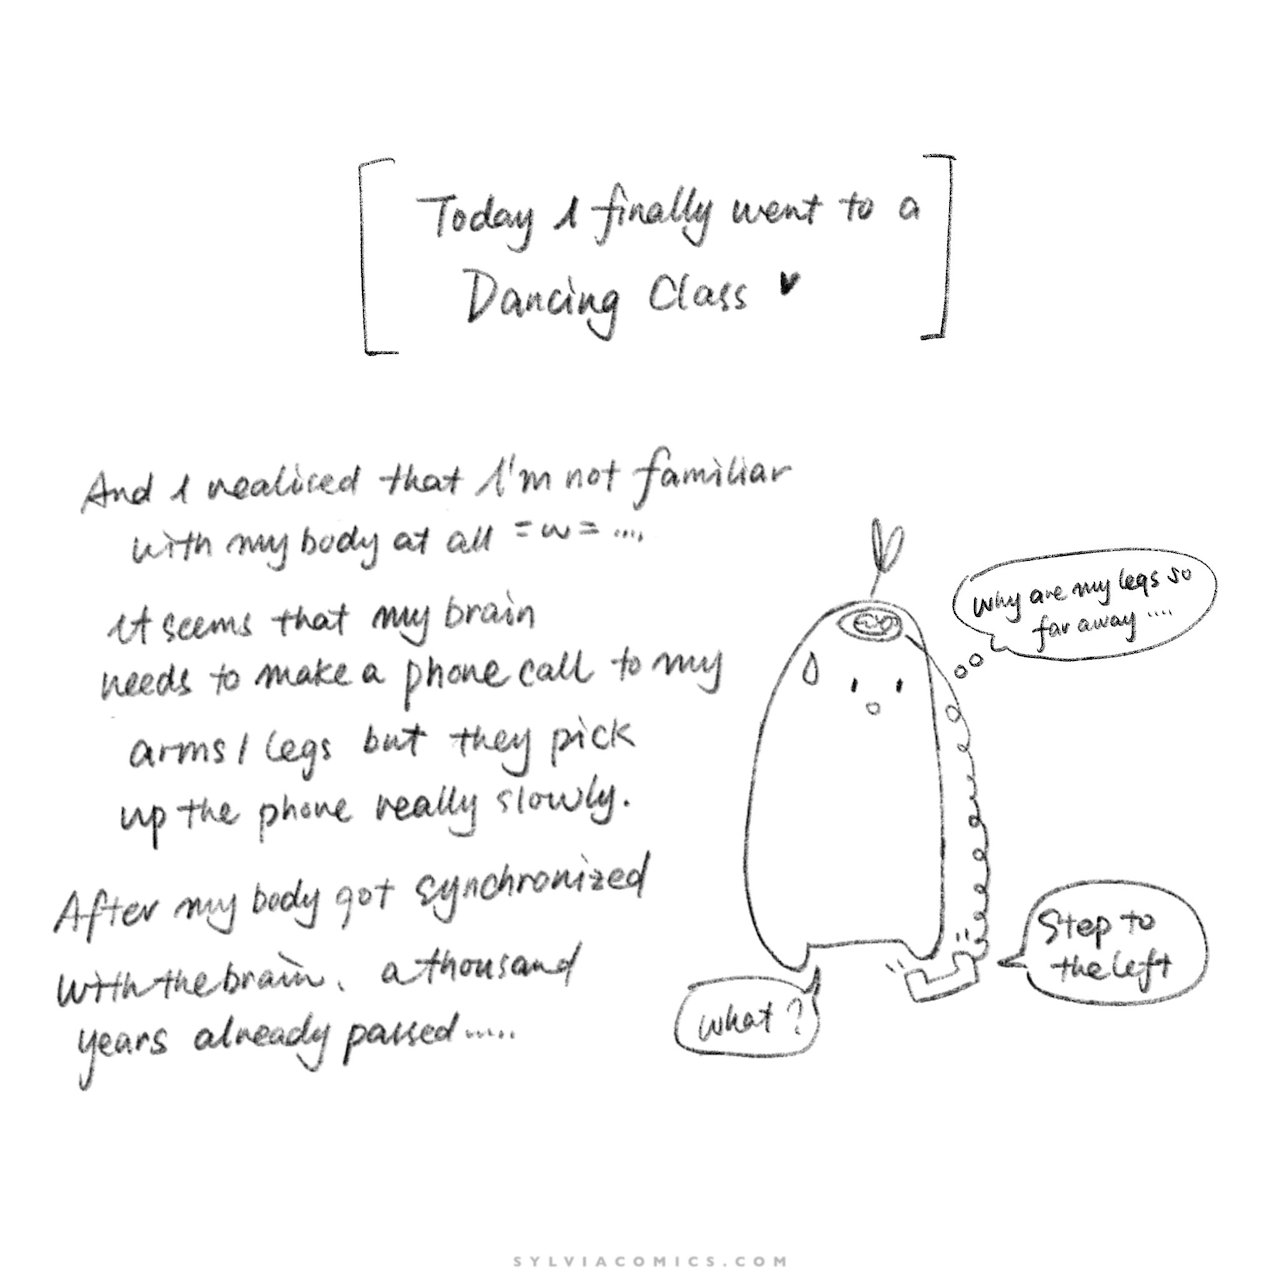 Today I finally went to a
Dancing Class ♥
And I realised that I'm not familiar
with my body at all =w= ....
It seems that my brain
needs to make a phone call to my
arms/legs but they pick
up the phone really slowly.
After my body got synchronized
with the brain, a thousand
years already passed.....
Why are my legs so
far away ....
Step to
the left
what?
SYLVIACOMICS.COM